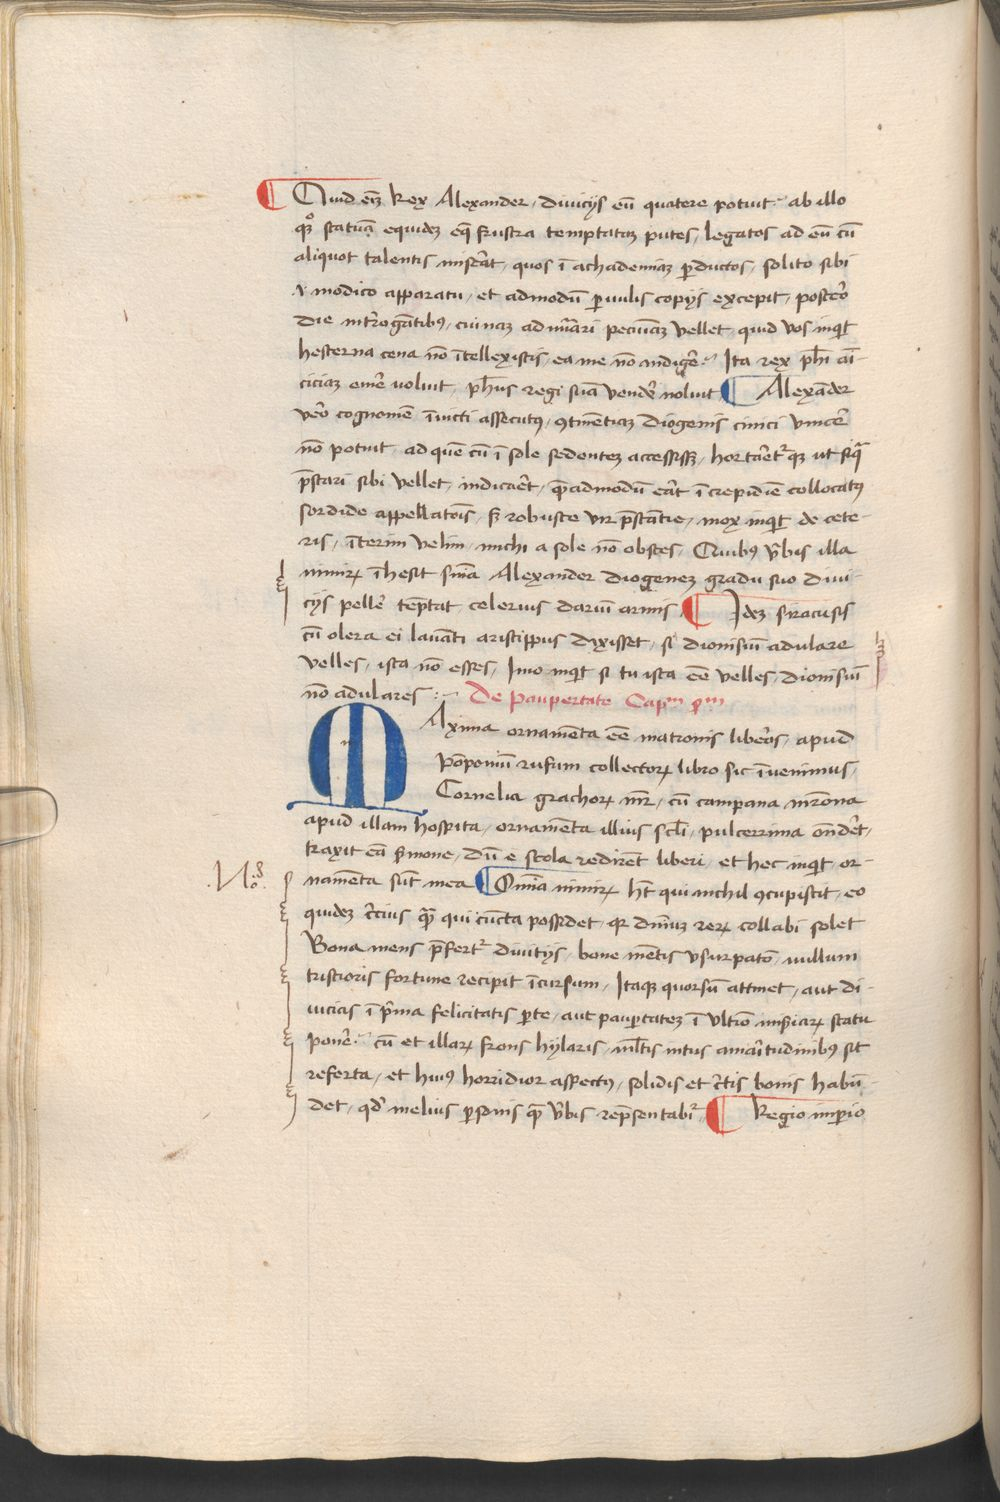 Quid eciz Rex Alexander / diuicijs eū quatere potuit · ab illo
qͦꝫ statuā equidez eqꝫ frustra temptatuz putes / legatos ad eū cū
aliquot talentis miserat / quos ī achademiaz ꝑductos / solito sibi
modico apparatu / et admodū ꝑuulis copijs excepit / postero
die interrogātibꝰ / cuinaz ad nūerari pecuniaz vellet / quid vos inqͥt
hesterna cena nō ītellexistis / ea me nō indigere · Ita rex phī ami-
ciciaz emere uoluit / phūs regi suā vendere noluit ¶ Alexāder
vero cognomē īuicti assecutꝰ / ꝯtinentiaz Diogenis cinici vincere
nō potuit / ad quē cū ī sole sedentez accessissꝫ / hortaretᷣqꝫ ut siqᷓ
p̄stari sibi vellet / indicaret / q̄admodū erat ī crepidīe collocatꝰ
sordide appellatōis / sꝫ robuste vir p̄stātie / mox inqͥt de cete-
ris / īterim velim / michi a sole nō obstes / Quibꝰ v̄bis illa
nimirꝝ īhesit sn̄ia Alexander diogenez gradu suo diui-
cijs pellere tēptat celerius dariū armis ¶ Idez siracusis
cū olera ei lauāti aristippus dixisset / si dionisiū adulare
velles / ista nō esses / Imo inqͥt si tu ista eē velles / dionisiū
nō adulares :~ De paupertate Capᵐ pᵐ
MAxima ornamēta eē matronis liberos / apud
Pōponiū rufum collectorꝝ libro sic īuenimus /
Cornelia grachorꝝ mr̄ / cū campana mr̄ona
apud illam hospita / ornamēta illius scl̄i / pulcerrima ondēret /
traxit eā s̄mone / dū e scola redirēt liberi / et hec inqͥt or-
.No͛. namēta sūt mea ¶ Omīa nimirꝝ hꝫt qui nichil ꝯcupiscit / eo
quidez c̄cius qᷓ qui cūcta possidet / qꝛ dn̄iuz rerꝝ collabi solet
Bona mens p̄fertᷣ diuitijs / bone mētis vsurpatō / nullum
tristioris fortune recipit īcursum / Itaqꝫ quorsū attinet / aut di-
uicias ī p̄ma felicitatis ꝑte / aut pauꝑtatez ī vltīo miseriarꝝ statu
ponere · cū et illarꝝ frons hylaris / mltis intus amaritudinibꝰ sit
referta / et huiꝰ horridior aspectꝰ / solidis et c̄tis bonis habū-
det / qd̄ melius ꝑsonis qᷓ v̄bis rep̄sentabitᷣ ¶ Regio imꝑio